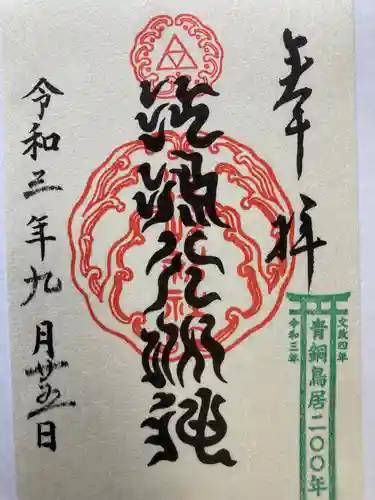 奉拝
江嶋大明神
令和三年九月廿五日
文政四年
青銅鳥居二〇〇年
令和三年